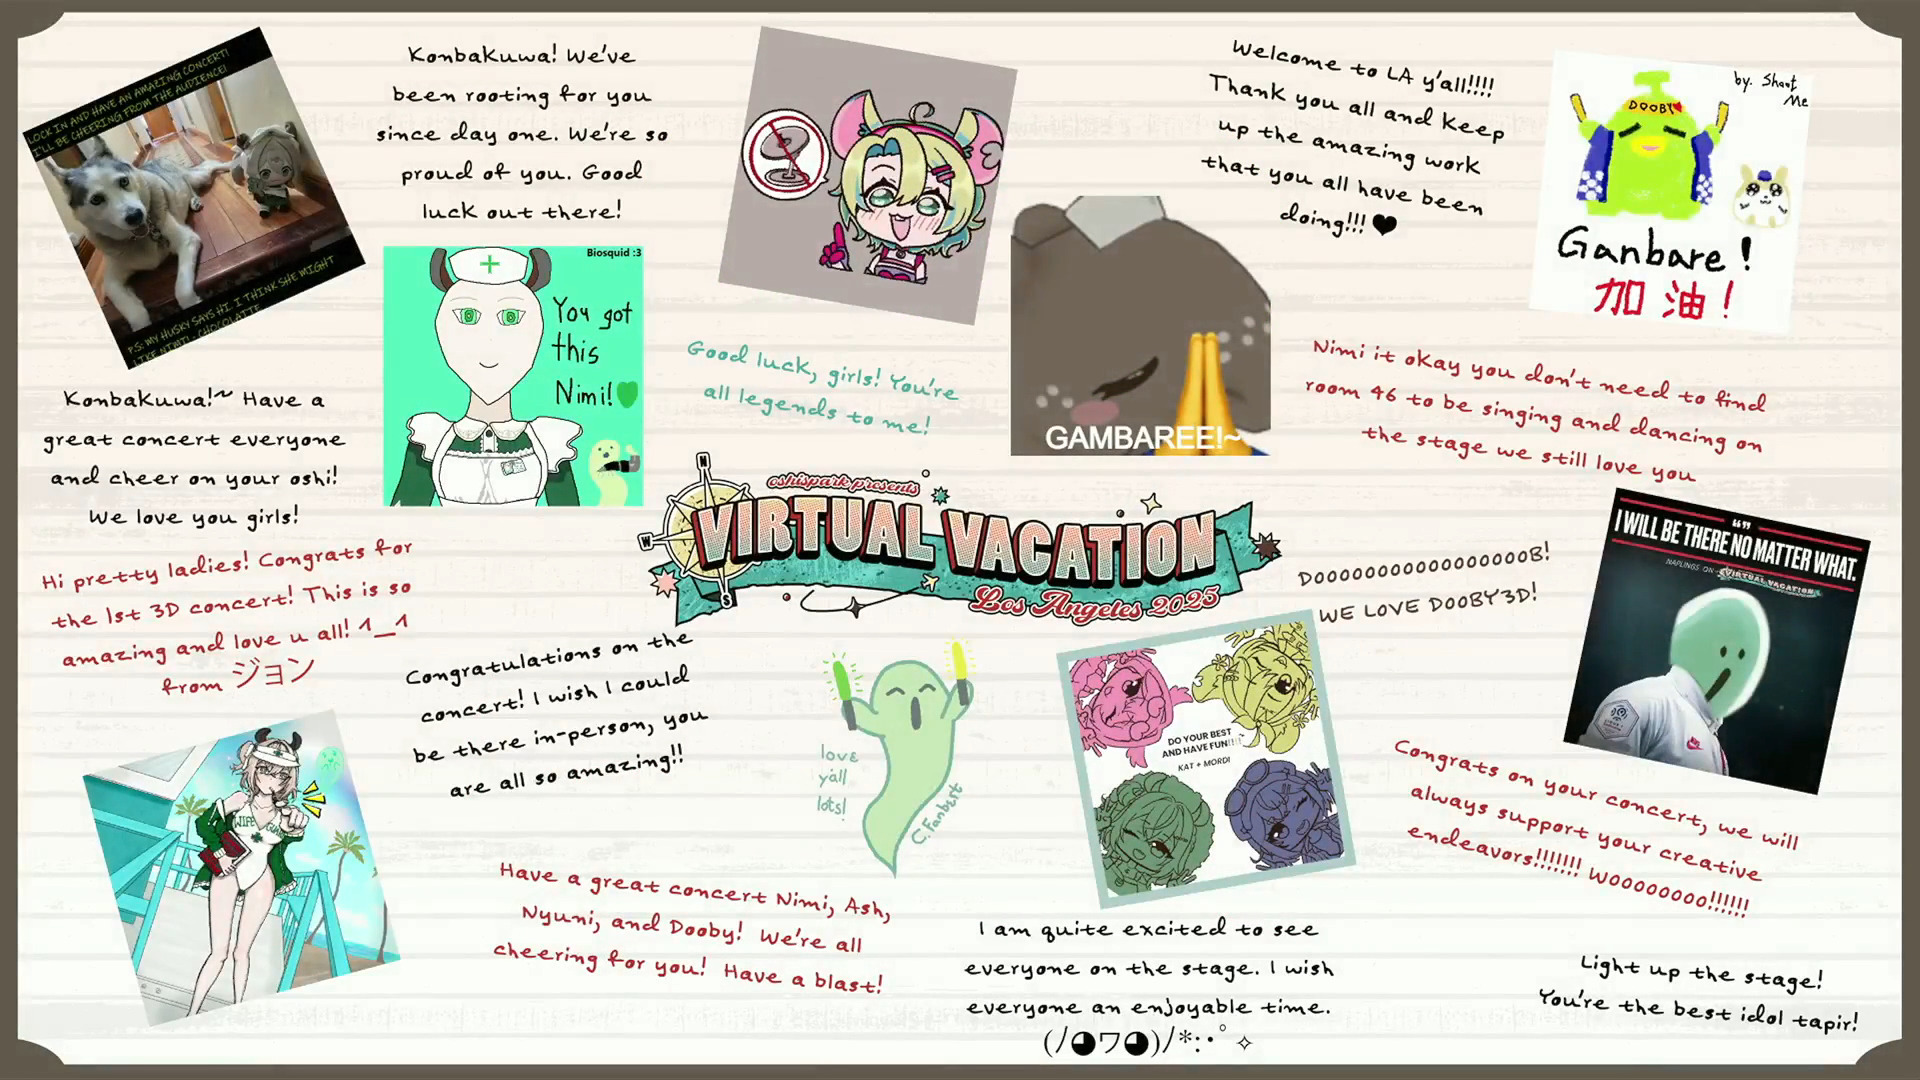 LOCK IN AND HAVE AN AMAZING CONCERT!
I'LL BE CHEERING FROM THE AUDIENCE!
P.S: MY HUSKY SAYS HI. I THINK SHE MIGHT
LIKE NIMI! - CHOCOLATTE
Konbakuwa! We've
been rooting for you
since day one. We're so
proud of you. Good
luck out there!
Welcome to LA y'all!!!!
Thank you all and keep
up the amazing work
that you all have been
doing!!! ♥
by. Shout
Me
DOOBY
Ganbare!
加油!
Biosquid :3
You got
this
Nimi!
Good luck, girls! You're
all legends to me!
GAMBAREE!~
Nimi it okay you don't need to find
room 46 to be singing and dancing on
the stage we still love you
Konbakuwa!~ Have a
great concert everyone
and cheer on your oshi!
We love you girls!
N
W
S
oshispark presents
VIRTUAL VACATION
Los Angeles 2025
Hi pretty ladies! Congrats for
the 1st 3D concert! This is so
amazing and love u all! ^_^
from ジョン
DOOOOOOOOOOOOOOOOB!
WE LOVE DOOBY3D!
“”
I WILL BE THERE NO MATTER WHAT.
NAPLINGS ON
VIRTUAL VACATION
Congratulations on the
concert! I wish I could
be there in-person, you
are all so amazing!!
love
y'all
lots!
C. Fanbest
DO YOUR BEST
AND HAVE FUN!!!!~
KAT + MORDI
Congrats on your concert, we will
always support your creative
endeavors!!!!!!! WOOOOOOOO!!!!!!
WIFE GUARD
Have a great concert Nimi, Ash,
Nyuni, and Dooby! We're all
cheering for you! Have a blast!
I am quite excited to see
everyone on the stage. I wish
everyone an enjoyable time.
(ﾉ◕ヮ◕)ﾉ*:･ﾟ✧
Light up the stage!
You're the best idol tapir!